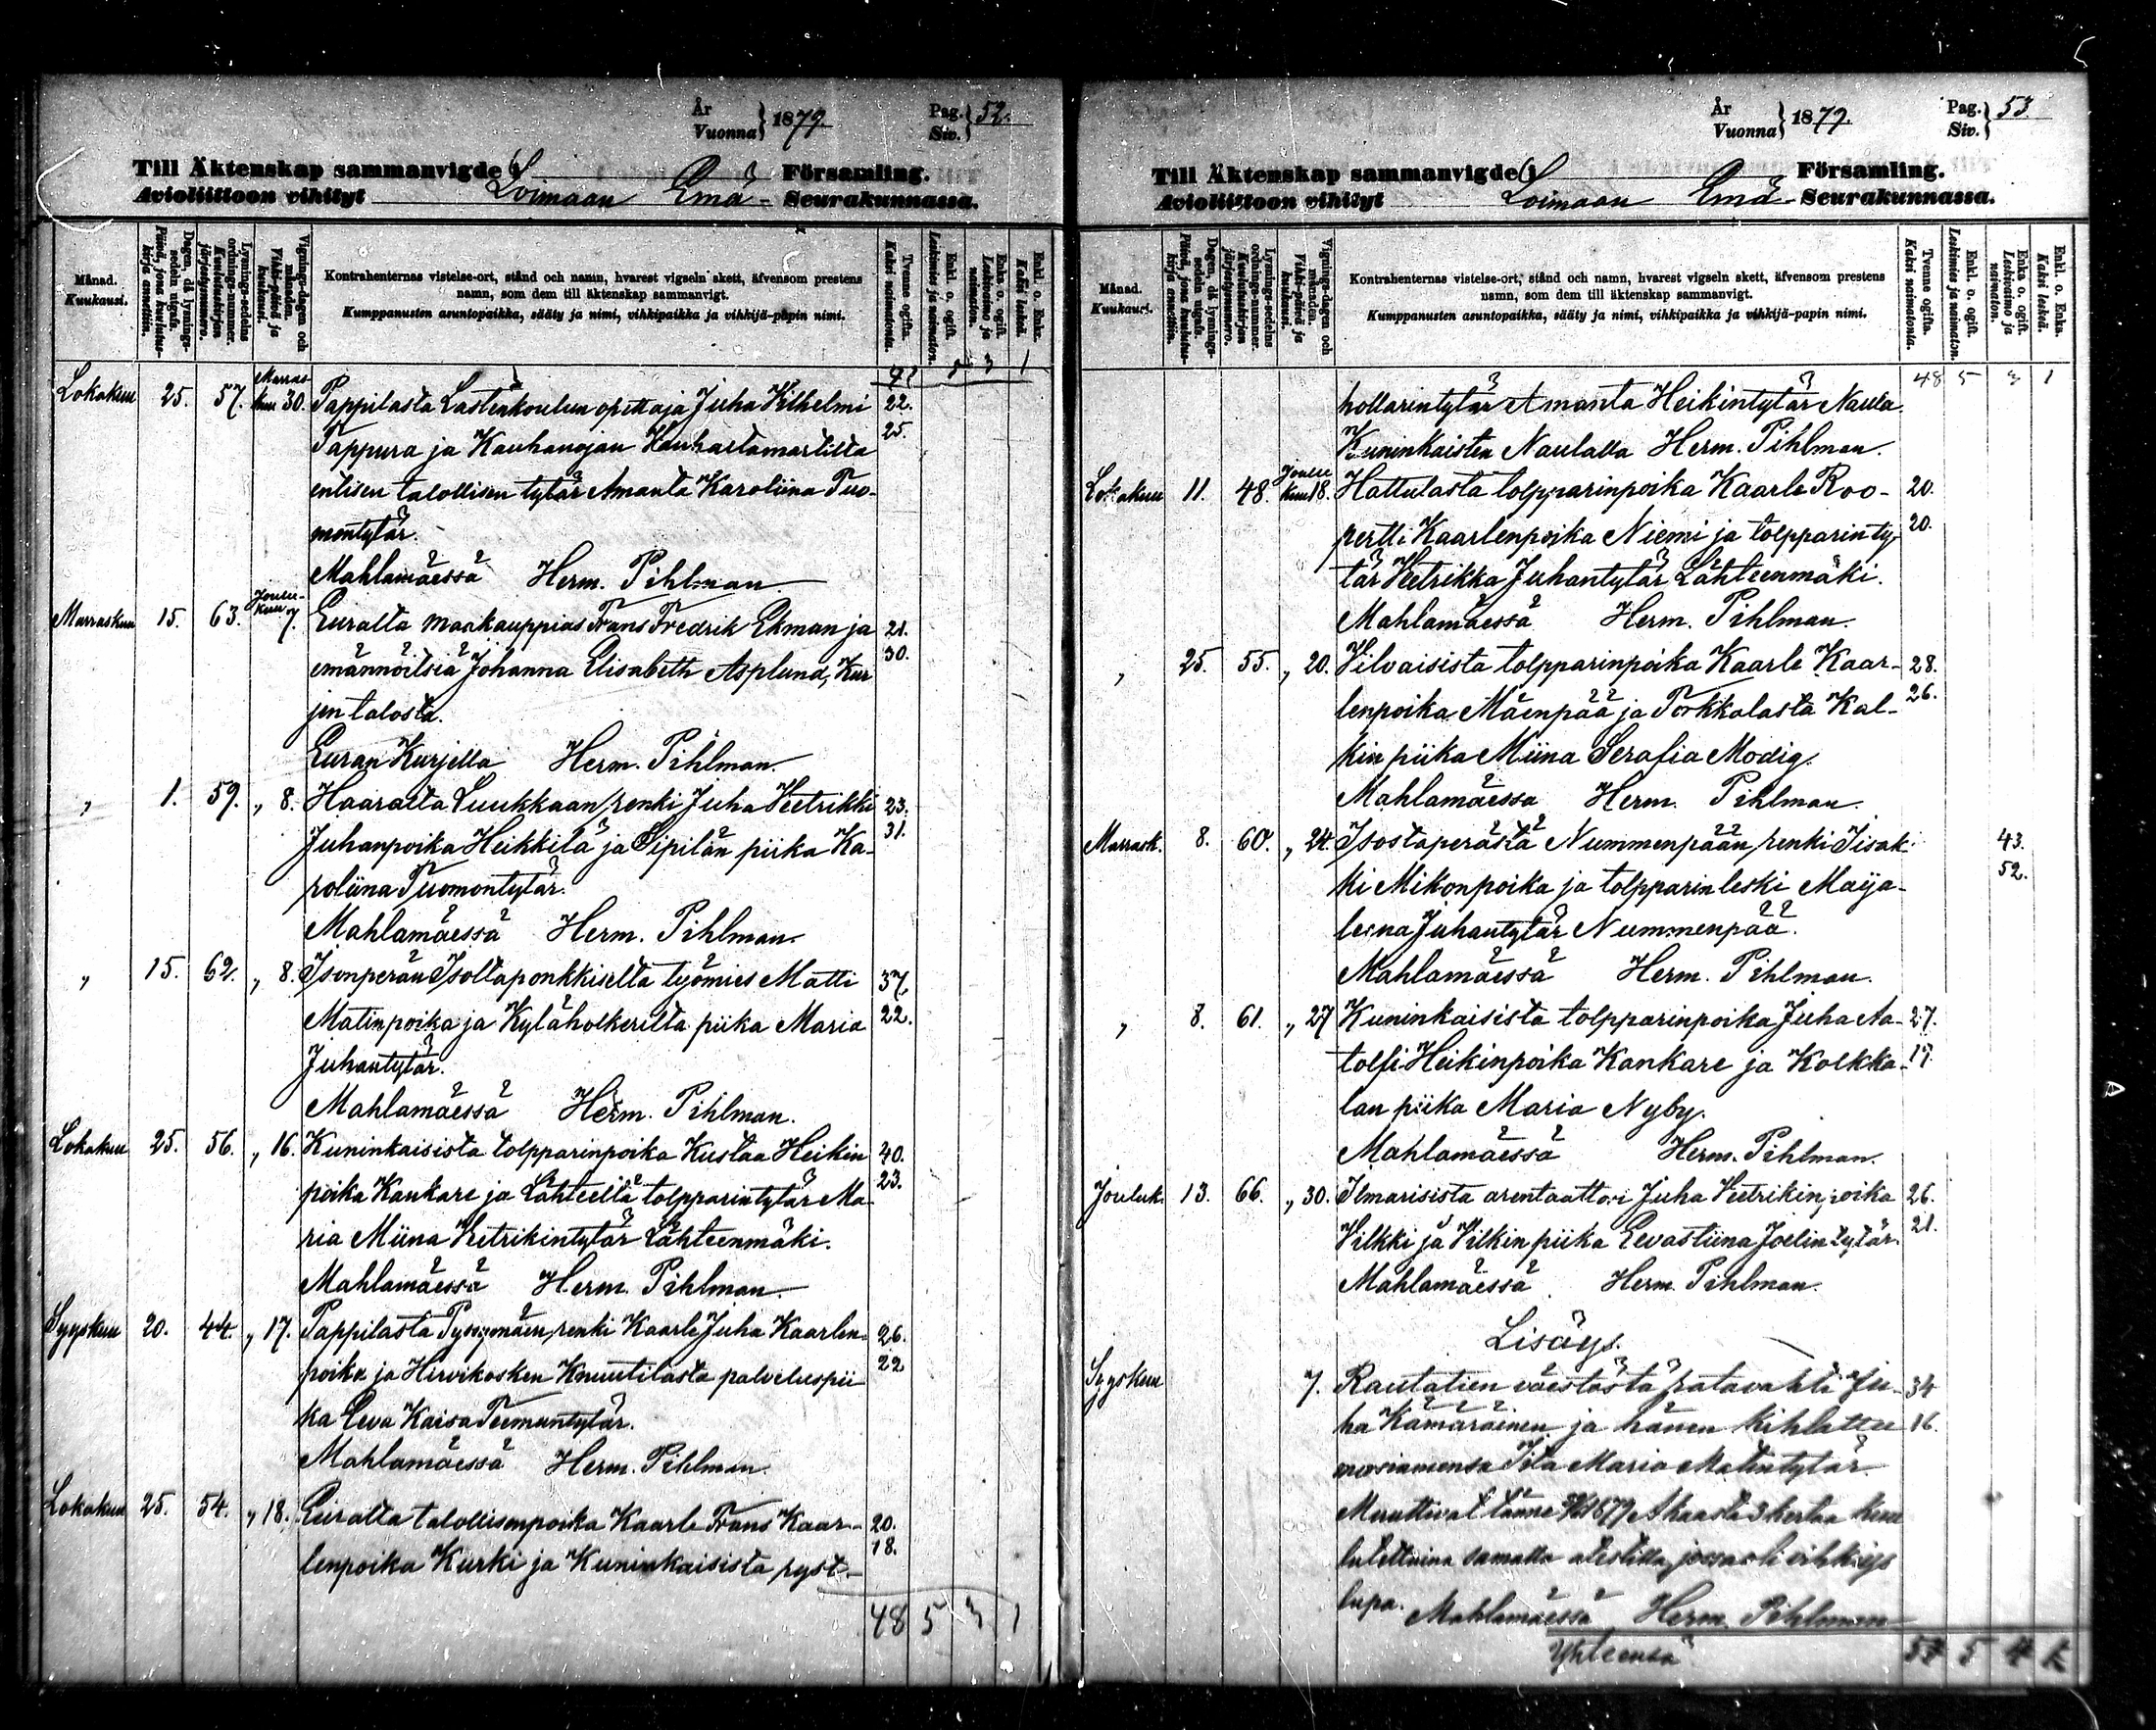 År
Vuonna } 1879. Pag. Siv. } 52.
Till Äktenskap sammanvigde i Församling.
Avioliittoon vihityt Loimaan Emä - Seurakunnassa.
Månad. Kuukausi.
Dagen, då lysningssedeln utgafs. Päivä, jona kuulutuskirja annettiin.
Lysnings-sedelns ordnings-nummer. Kuulutuskirjan järjestysnumero.
Vignings-dagen och månaden. Vihki-päivä ja kuukausi.
Kontrahenternas vistelse-ort, stånd och namn, hvarest vigseln skett, äfvensom prestens
namn, som dem till äktenskap sammanvigt.
Kumppanusten asuntopaikka, sääty ja nimi, vihkipaikka ja vihkijä-papin nimi.
Tvenne ogifta. Kaksi naimatonta.
Enkl. o. ogift. Leskimies ja naimaton.
Enka o. ogift. Leskivaimo ja naimaton.
Enkl. o. Enka. Kaksi leskeä.
5 3 1
Lokakuu 25. 57. Marraskuu 30. Pappilasta Lastenkoulun opettaja Juha Vilhelmi 22.
Tappura ja Kauhanojan Kauhaltamartilta 25.
entisen talollisen tytär Amanta Karoliina Tuo-
montytär.
Mahlamäessä Herm. Pihlman
Marraskuu 15. 63. Joulukuu 7. Euralta maakauppias Frans Fredrik Ekman ja 21.
emännöitsiä Johanna Elisabeth Asplund, Kur 30.
jen talosta.
Euran Kurjella Herm. Pihlman.
" 1. 59. " 8. Haaralta Luukkaan renki Juha Veetrikki 23.
Juhanpoika Heikkilä ja Sipilän piika Ka- 31.
roliina Tuomontytär.
Mahlamäessä Herm. Pihlman
" 15. 62. " 8. Isonperän Isoltaponkkiselta työmies Matti 37.
Matinpoika ja Kyläholkerilta piika Maria 22.
Juhantytär.
Mahlamäessä Herm. Pihlman.
Lokakuu 25. 56. " 16. Kuninkaisista tolpparinpoika Kustaa Heikin 40.
poika Kankare ja Lähteellä tolpparintytär Ma- 23.
ria Miina Veetrikintytär Lähteenmäki.
Mahlamäessä Herm. Pihlman
Syyskuu 20. 44. " 17. Pappilasta renki Kaarle Juha Kaarlen- 26.
poika ja Hirvikosken Knuutilasta palveluspii 22
ka Eeva Kaisa Teemuntytär.
Mahlamäessä Herm. Pihlman
Lokakuu 25. 54. " 18. Euralta talollisenpoika Kaarle Frans Kaar- 20.
lenpoika Kurki ja Kuninkaisista pyst- 18.
48 5 3 1
År
Vuonna } 1879. Pag. Siv. } 53
Till Äktenskap sammanvigde i Församling.
Avioliittoon vihityt Loimaan Emä - Seurakunnassa.
Månad. Kuukausi.
Dagen, då lysningssedeln utgafs. Päivä, jona kuulutuskirja annettiin.
Lysnings-sedelns ordnings-nummer. Kuulutuskirjan järjestysnumero.
Vignings-dagen och månaden. Vihki-päivä ja kuukausi.
Kontrahenternas vistelse-ort, stånd och namn, hvarest vigseln skett, äfvensom prestens
namn, som dem till äktenskap sammanvigt.
Kumppanusten asuntopaikka, sääty ja nimi, vihkipaikka ja vihkijä-papin nimi.
Tvenne ogifta. Kaksi naimatonta.
Enkl. o. ogift. Leskimies ja naimaton.
Enka o. ogift. Leskivaimo ja naimaton.
Enkl. o. Enka. Kaksi leskeä.
48 5 3 1
hollarintytär Amanta Heikintytär Naula.
Kuninkaisten Naulalla Herm. Pihlman.
Lokakuu 11. 48. Joulukuu 18. Hattulasta tolpparinpoika Kaarle Roo- 20.
pertti Kaarlenpoika Niemi ja tolpparinty 20.
tär Veetrikka Juhantytär Lähteenmäki.
Mahlamäessä Herm. Pihlman.
" 25. 55. " 20. Vilvaisista tolpparinpoika Kaarle Kaar- 28.
lenpoika Mäenpää ja Torkkalasta Kal- 26.
kin piika Miina Serafia Modig.
Mahlamäessä Herm. Pihlman.
Marrask. 8. 60. " 24. Isostaperästä Nummenpään renki Iisak- 43.
ki Mikonpoika ja tolpparin leski Maija- 52.
leena Juhantytär Nummenpää.
Mahlamäessä Herm. Pihlman.
" 8. 61. " 27 Kuninkaisista tolpparinpoika Juha Aa- 27.
tolfi Heikinpoika Kankare ja Kolkka- 19.
lan piika Maria Nyby.
Mahlamäessä Herm. Pihlman.
Jouluk. 13. 66. " 30. Ilmarisista arentaattori Juha Veetrikinpoika 26.
Vilkki ja Vilkin piika Eevastiina Joelintytär. 21.
Mahlamäessä. Herm. Pihlman.
Lisäys.
Syyskuu 7. Rautatien väestöstä ratavahti Ju- 34
ha Kämäräinen ja hänen kihlattu 16.
morsiamensa Iita Maria Matintytär.
Muuttivat tänne 1879 Akaasta 3 kertaa kuu
lutettuina samalla atestilla, jossa oli vihkiys
lupa. Mahlamäessä Herm. Pihlman
Yhteensä 54 5 4 1